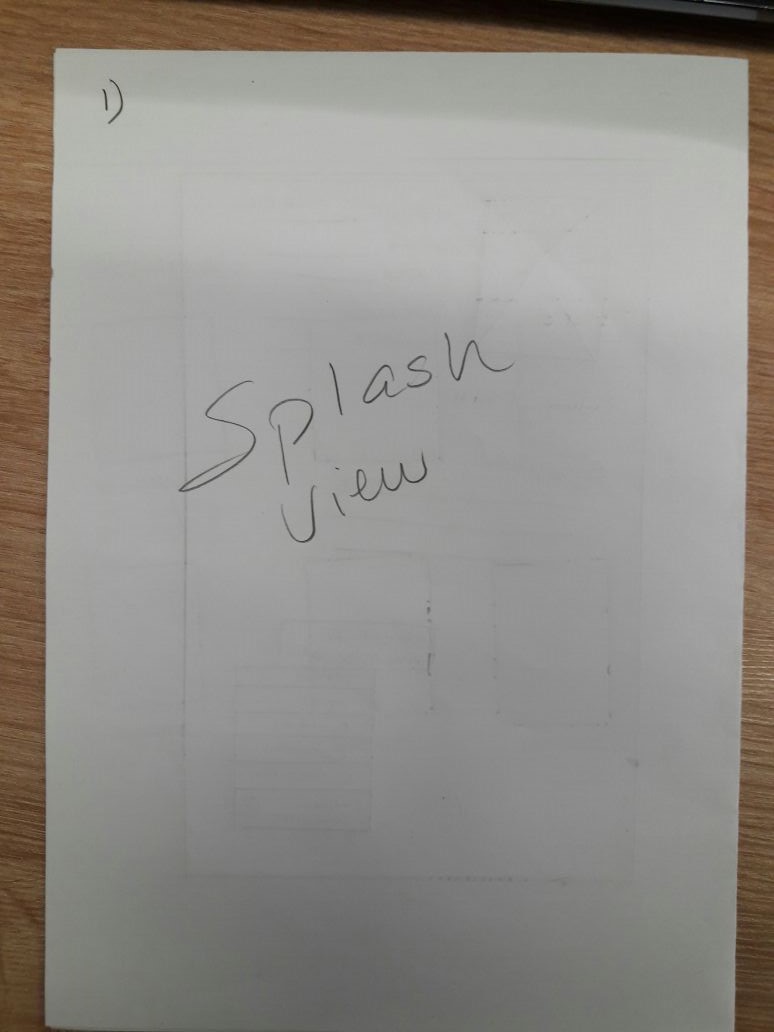 1)
Splash
view